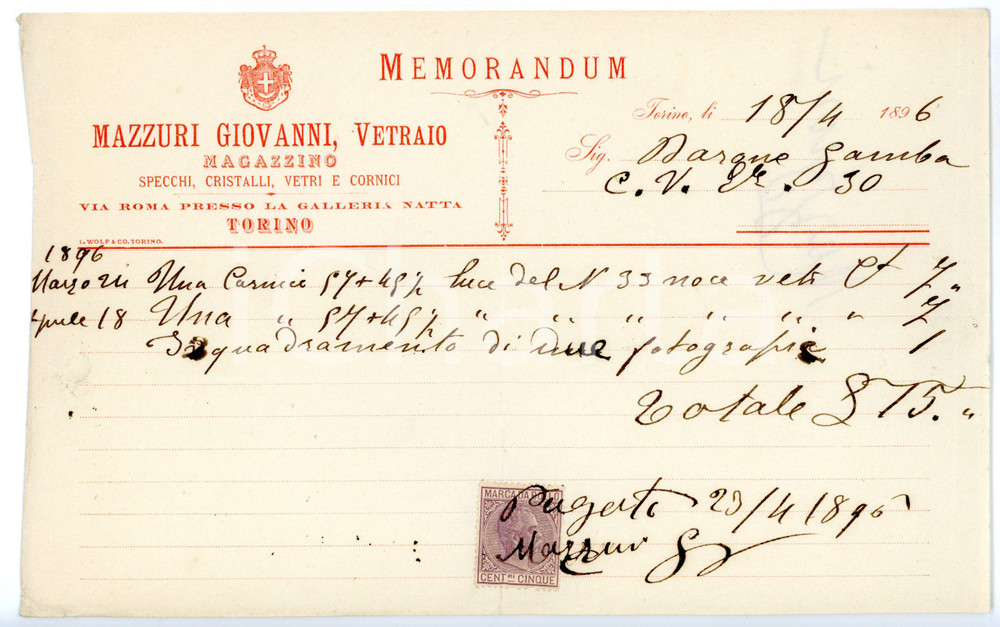 MEMORANDUM
MAZZURI GIOVANNI, VETRAIO
MAGAZZINO
SPECCHI, CRISTALLI, VETRI E CORNICI
VIA ROMA PRESSO LA GALLERIA NATTA
TORINO
L. WOLF & CO. TORINO.
Torino, li 18/4 1896
Sig. Barone Gamba
C. V. 30
1896
Marzo 24 Una Cornice 57+45½ luce del N 33 noce veti £ 7 "
Aprile 18 Una " 57+45½ " " " " " " 7
Inquadramento di due fotografie 1
Totale £ 15. "
MARCA DA BOLLO
Pagato 23/4 1896
Mazzuri G
CENT.MI CINQUE